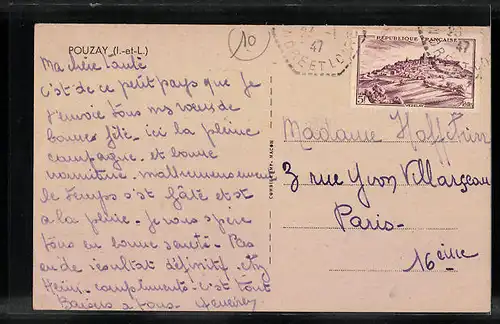 POUZAY (I.-et-L.)
10
47
INDRE ET LOIRE
47
RÉPUBLIQUE FRANÇAISE
5F
VEZELAY
Ma chère tante
C'est de ce petit pays que je
t'envoie tous mes vœux de
bonne fête - ici la pleine
campagne et bonne
nourriture. malheureusement
le temps s'est gâté et est
a la pluie - je vous espère
tous en bonne santé. Pas
eu de résultat définitif
compliments - c'est tout
Baisers a tous
COMBIER IMP. MACON
Madame
3 rue Yvon Villarceau
Paris-
16ème